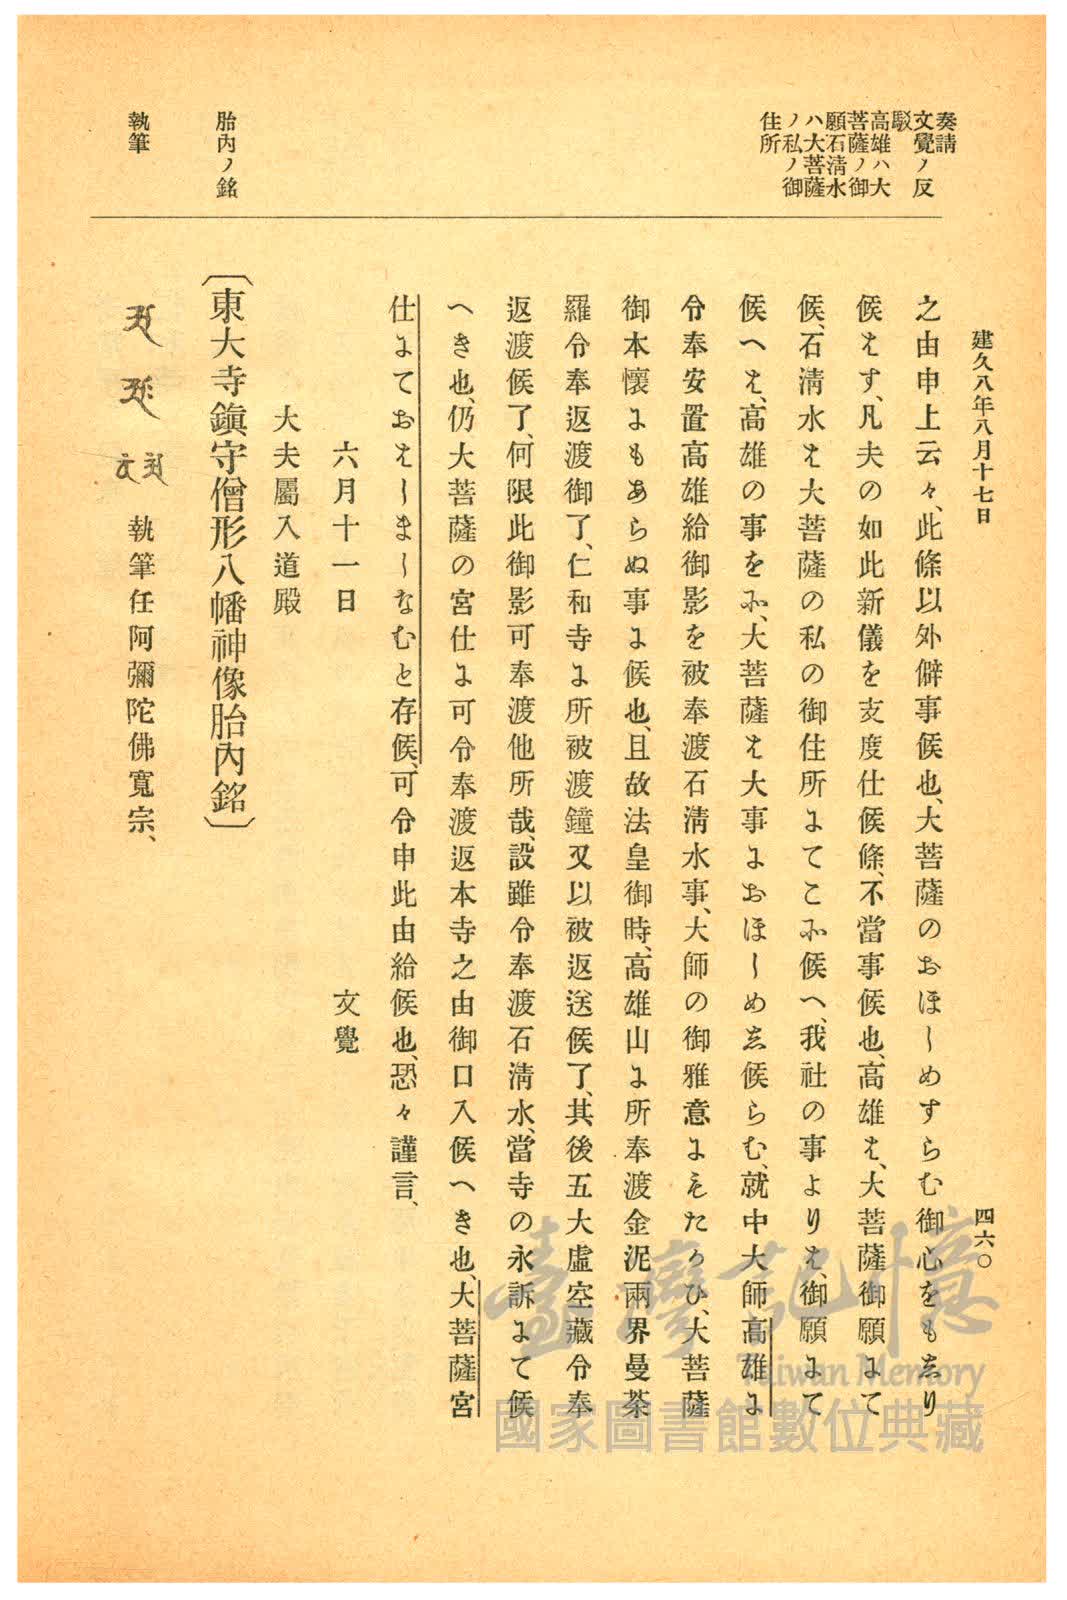 建久八年八月十七日
四六〇
奏請
文覺ノ反
駁
高雄ハ大
菩薩ノ御
願石淸水
ハ大菩薩
ノ私ノ御
住所
之由申上云々、此條以外僻事候也、大菩薩のおほしめすらむ御心をもゑり
候はす、凡夫の如此新儀を支度仕候條、不當事候也、高雄は、大菩薩御願にて
候、石淸水は大菩薩の私の御住所にてこそ候へ、我社の事よりは、御願にて
候へは、高雄の事をそ、大菩薩は大事におほしめゑ候らむ、就中大師高雄に
令奉安置高雄給御影を被奉渡石淸水事、大師の御雅意にもたかひ、大菩薩
御本懷にもあらぬ事に候也、且故法皇御時、高雄山に所奉渡金泥兩界曼荼
羅令奉返渡御了、仁和寺に所被渡鐘又以被返送候了、其後五大虛空藏令奉
返渡候了、何限此御影可奉渡他所哉、設雖令奉渡石淸水、當寺の永訴にて候
へき也、仍大菩薩の宮仕に可令奉渡返本寺之由御口入候へき也、大菩薩宮
仕にておはしましなむと存候、可令申此由給候也、恐々謹言、
六月十一日
文覺
大夫屬入道殿
胎內ノ銘
〔東大寺鎭守僧形八幡神像胎內銘〕
執筆
執筆任阿彌陀佛寬宗、
臺灣記憶
Taiwan Memory
國家圖書館數位典藏